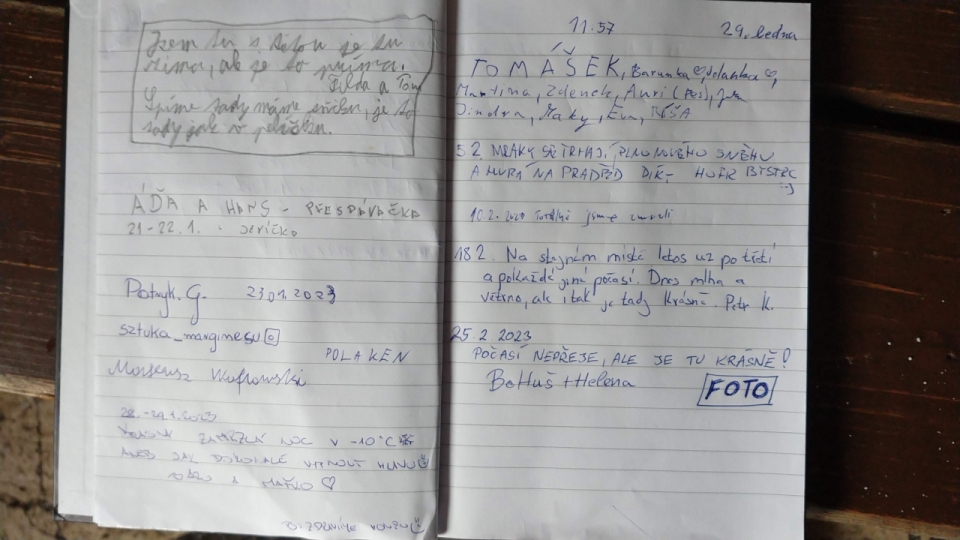 Jsem tu s tátou je tu
zima, ale je to príma.
Tilda a Tom
Spíme tady máme svíčku, je to
tady jak v pelíšku.
ÁĎA A HANS - PŘESPÁVAČKA
21-22.1. JARÍČKO
Patryk. G. 23.01.2023
sztuka_marginesu
POLAKEN
Mateusz
28.-29.1.2023
NOC V -10°C
ANEB JAK DOKONALE VYPNOUT HLAVU
A
11:57 29. ledna
TOMÁŠEK, Barunka
Martina, Zdenek, Auri (pes),
Jindra, Maky, Eva, RÍŠA
5 2. MRAKY SE TRHAJÍ, PLNO NOVÉHO SNĚHU
A HURÁ NA PRADĚD DÍK- HOFR BYSTRC
:-)
10.2. Totálně jsme zmrzli
18 2. Na stejném místě letos už po třetí
a pokaždé jiné počasí. Dnes mlha a
větrno, ale i tak je tady krásně. Petr K.
25.2 2023
POČASÍ NEPŘEJE, ALE JE TU KRÁSNĚ!
BoHuš + Helena
FOTO